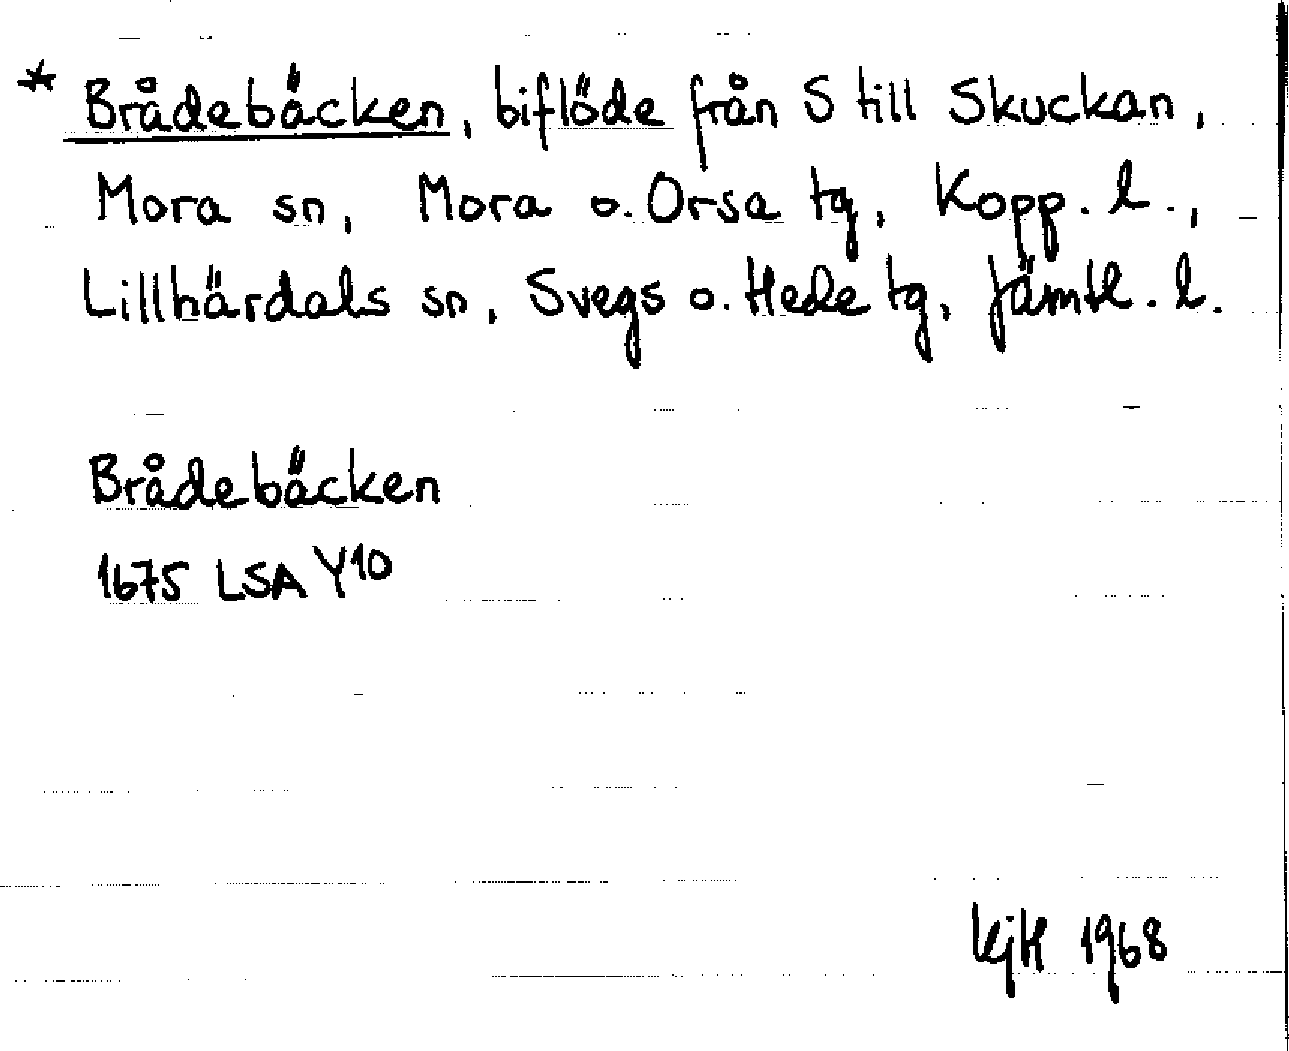 * Brådebäcken, biflöde från S till Skuckan,
Mora sn, Mora o. Orsa tg, Kopp. l.,
Lillhärdals sn, Svegs o. Hede tg, Jämtl. l.
Brådebäcken
1675 LSA Y10
KjH 1968